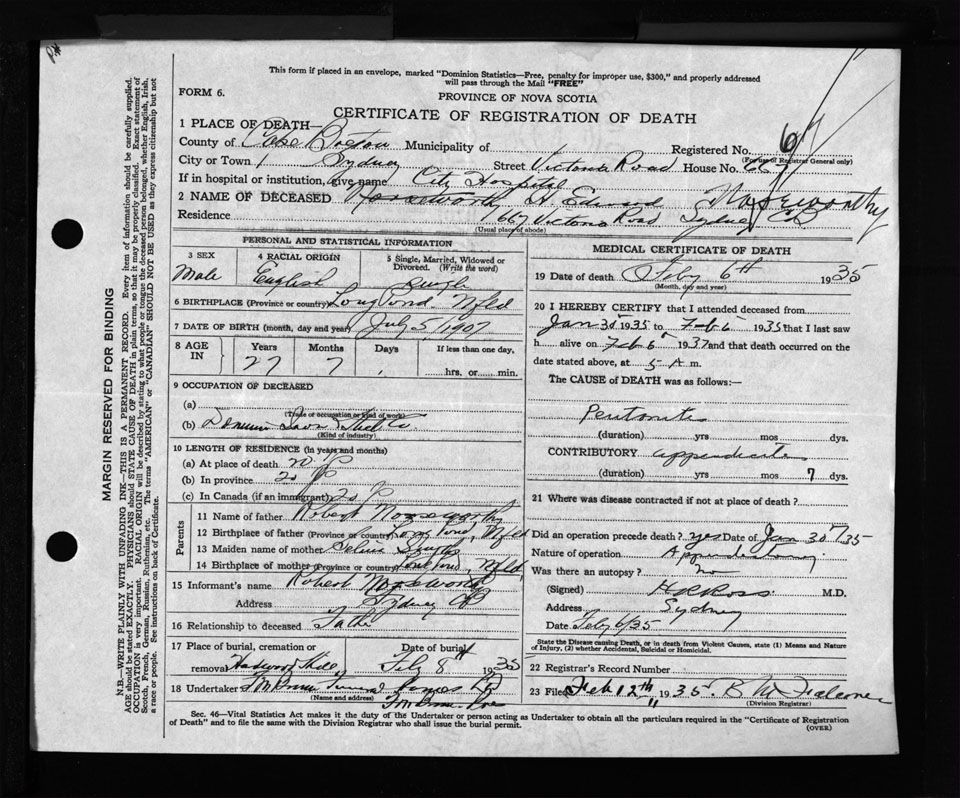 This form if placed in an envelope, marked "Dominion Statistics—Free, penalty for improper use, $300," and properly addressed
will pass through the Mail "FREE"
FORM 6.
PROVINCE OF NOVA SCOTIA
CERTIFICATE OF REGISTRATION OF DEATH
1 PLACE OF DEATH—
County of Cape Breton Municipality of Registered No. 67
(For use of Registrar General only)
City or Town Sydney Street Victoria Road House No. 667
If in hospital or institution, give name City Hospital
2 NAME OF DECEASED H. Edward Noseworthy
Residence 667 Victoria Road Sydney CB
(Usual place of abode)
PERSONAL AND STATISTICAL INFORMATION
3 SEX 4 RACIAL ORIGIN 5 Single, Married, Widowed or
Divorced. (Write the word)
Male English Single
6 BIRTHPLACE (Province or country) Long Pond Nfld
7 DATE OF BIRTH (month, day and year) July 5, 1907
8 AGE IN Years Months Days If less than one day,
27 7 hrs. or min.
9 OCCUPATION OF DECEASED
(a)
(Trade or occupation or kind of work)
(b) Dominion Iron & Steel Co
(Kind of industry)
10 LENGTH OF RESIDENCE (in years and months)
(a) At place of death 20
(b) In province 20
(c) In Canada (if an immigrant) 20
Parents
11 Name of father Robert Noseworthy
12 Birthplace of father (Province or country) Long Pond, Nfld
13 Maiden name of mother
14 Birthplace of mother (Province or country) Long Pond, Nfld
15 Informant's name Robert Noseworthy
Address Sydney CB
16 Relationship to deceased Father
17 Place of burial, cremation or Date of burial
removal Hardwood Hill Feb 8 1935
18 Undertaker
(Name and address)
MEDICAL CERTIFICATE OF DEATH
19 Date of death Feby 6th 1935
(Month, day and year)
20 I HEREBY CERTIFY that I attended deceased from
Jan 30 1935 to Feb 6 1935 that I last saw
h alive on Feb 6 1937 and that death occurred on the
date stated above, at 5 A m.
The CAUSE of DEATH was as follows:—
Peritonitis
(duration) yrs mos dys.
CONTRIBUTORY appendicitis
(duration) yrs mos 7 dys.
21 Where was disease contracted if not at place of death?
Did an operation precede death? yes Date of Jan 30/35
Nature of operation Appendectomy
Was there an autopsy? no
(Signed) H R Ross M.D.
Address Sydney
Date Feby 6/35
State the Disease causing Death, or in death from Violent Causes, state (1) Means and Nature
of Injury, (2) whether Accidental, Suicidal or Homicidal.
22 Registrar's Record Number
23 Filed Feb 12th 1935
(Division Registrar)
Sec. 46—Vital Statistics Act makes it the duty of the Undertaker or person acting as Undertaker to obtain all the particulars required in the "Certificate of Registration
of Death" and to file the same with the Division Registrar who shall issue the burial permit.
(OVER)
MARGIN RESERVED FOR BINDING
N.B.—WRITE PLAINLY WITH UNFADING INK—THIS IS A PERMANENT RECORD. Every item of information should be carefully supplied.
AGE should be stated EXACTLY. PHYSICIANS should STATE CAUSE OF DEATH in plain terms, so that it may be properly classified. Exact statement of
OCCUPATION is very important. RACIAL ORIGIN will be described by stating to what people or tongue the deceased person belonged, whether English, Irish,
Scotch, French, German, Russian, Ruthenian, etc. The terms "AMERICAN" or "CANADIAN" SHOULD NOT BE USED as they express citizenship but not
a race or people. See instructions on back of Certificate.